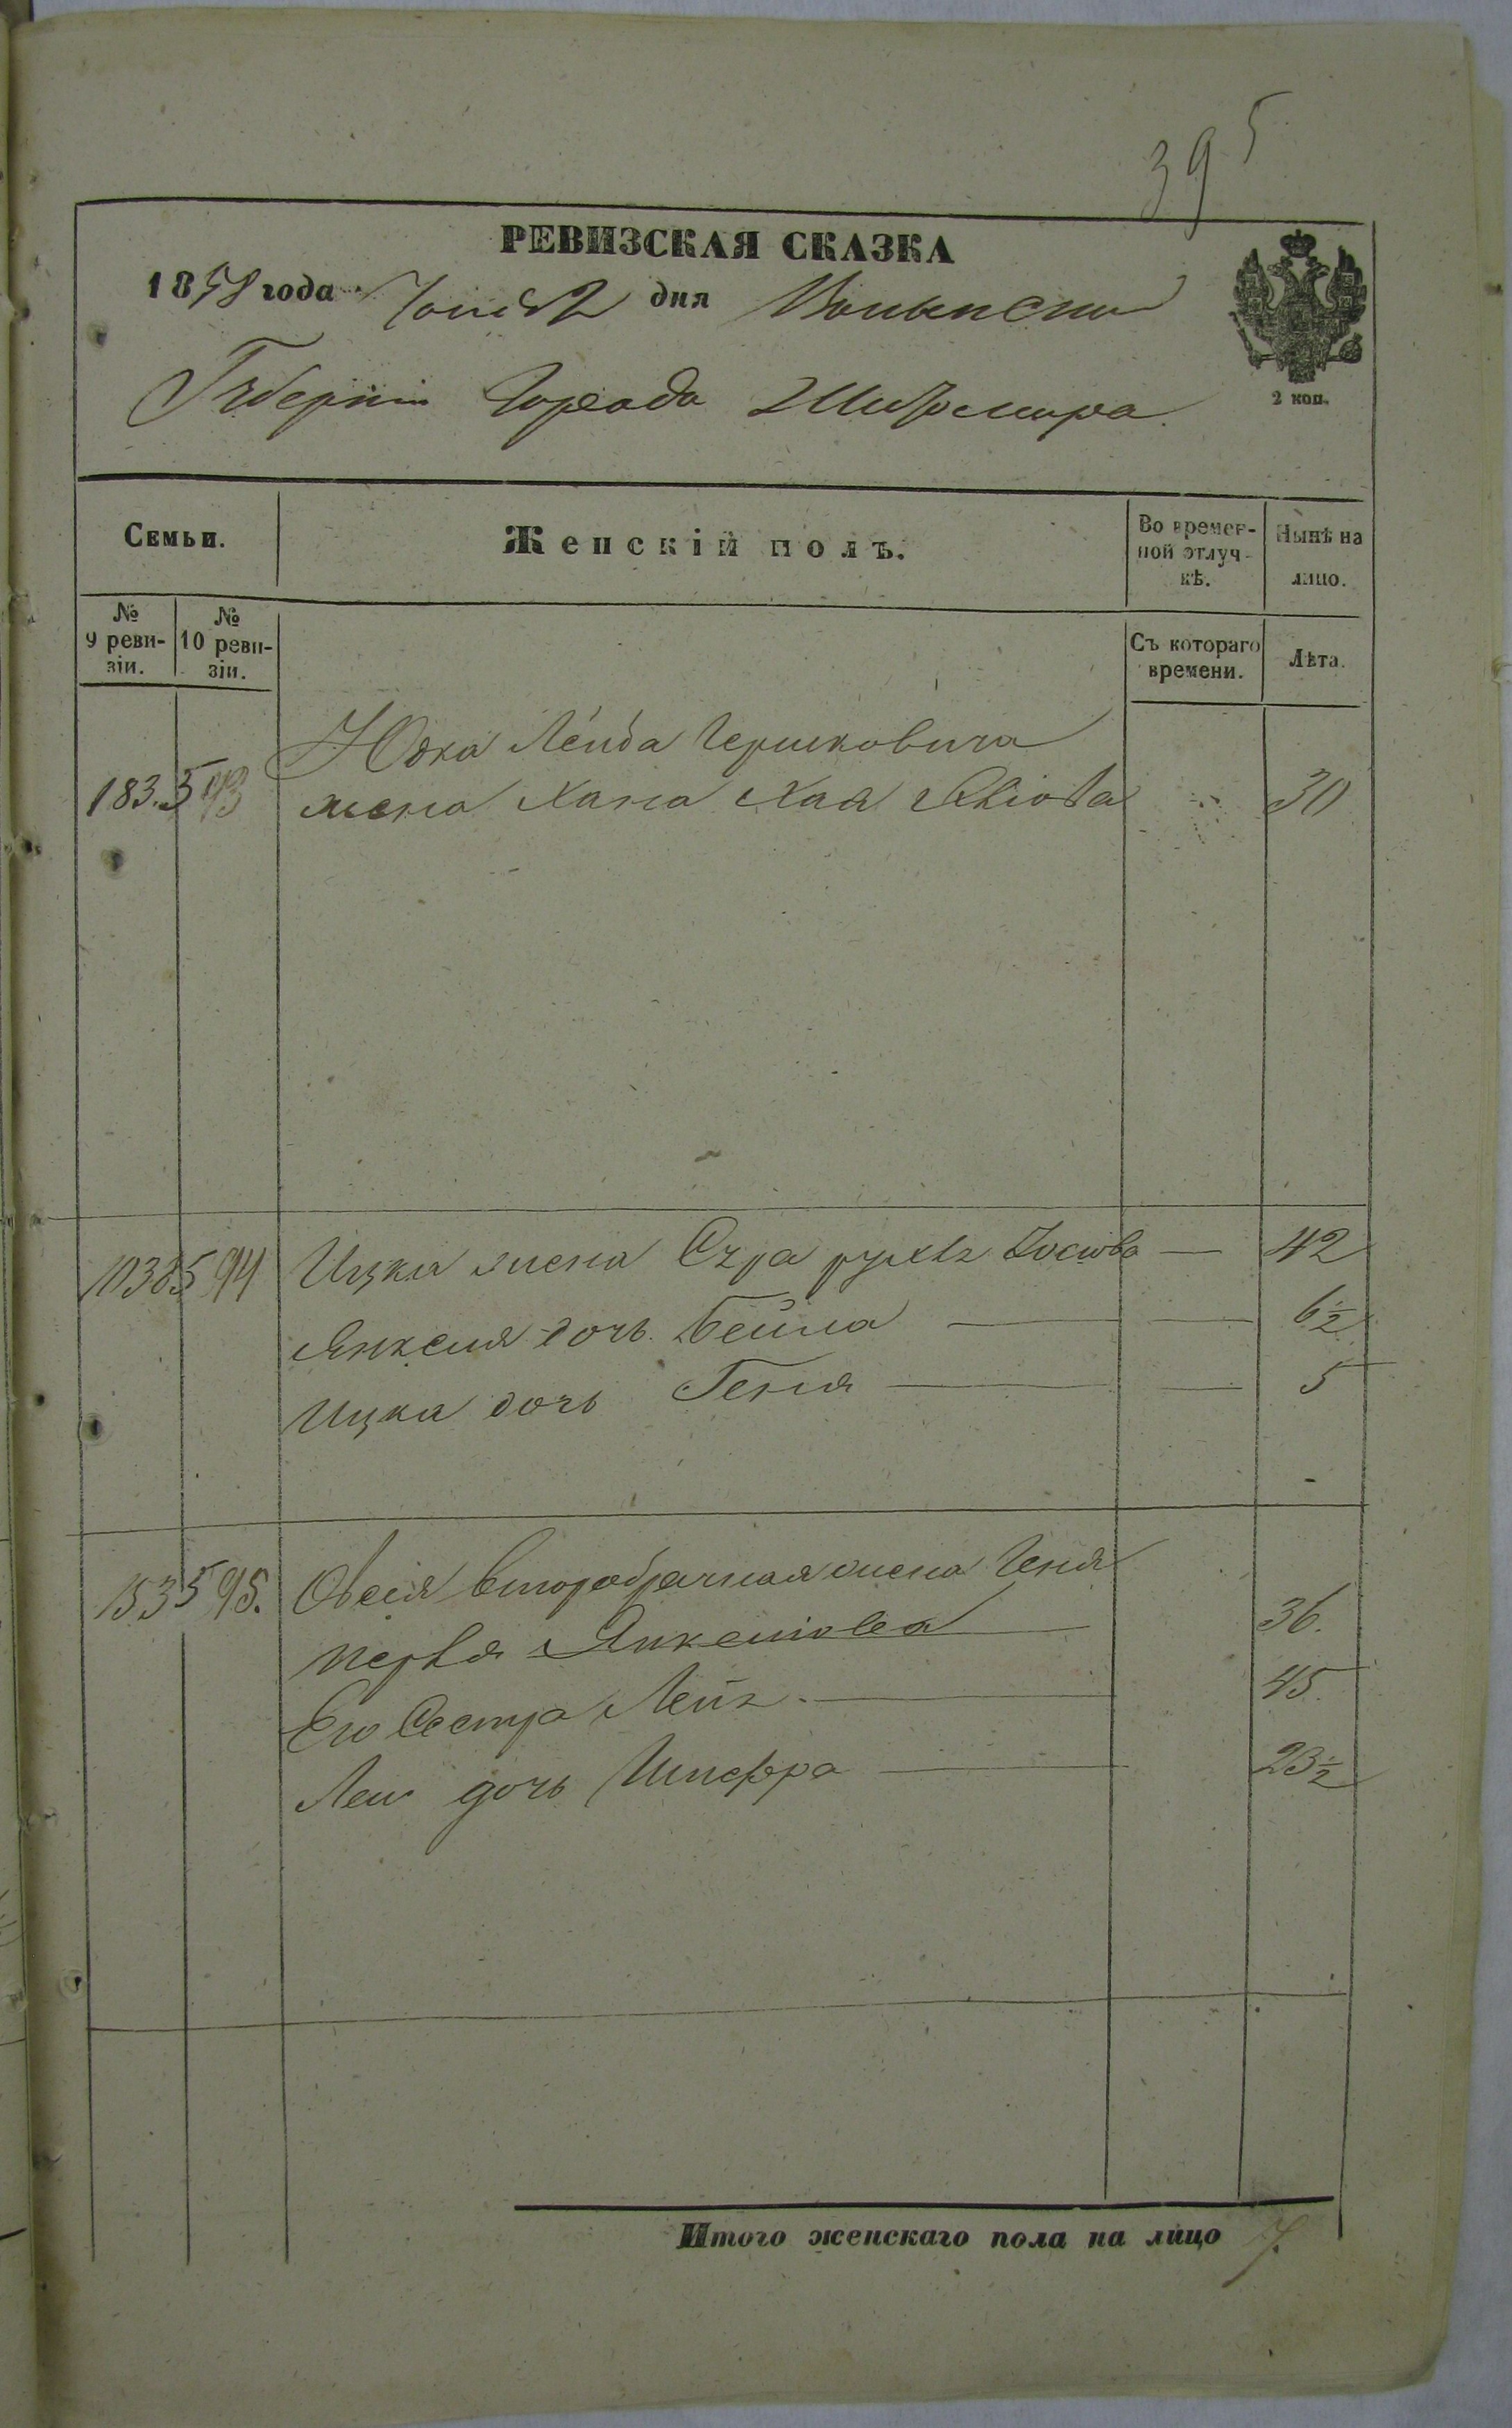 395
РЕВИЗСКАЯ СКАЗКА
1858 года дня Волынской
2 коп.
Губерніи Города Житомира
Семьи.
Женскій полъ.
Во времен-
ной отлуч-
кѣ.
Нынѣ на
лицо.
№
9 реви-
зіи.
№
10 реви-
зіи.
Съ котораго
времени.
Лѣта.
Юдка Лейба Гершковича
183. 593 жена Хана Хая 30
1038 594 Ицка жена Сура Іосіова — 42
Янкеля дочь Бейла — — 6½
Ицка дочь Геня — — 5
153 595. Овсія второбрачная жена Геня
Перля Янкеліова 36.
Его Сестра Лея — 45.
Леи дочь Шифра — 23½
Итого женскаго пола на лицо 7.